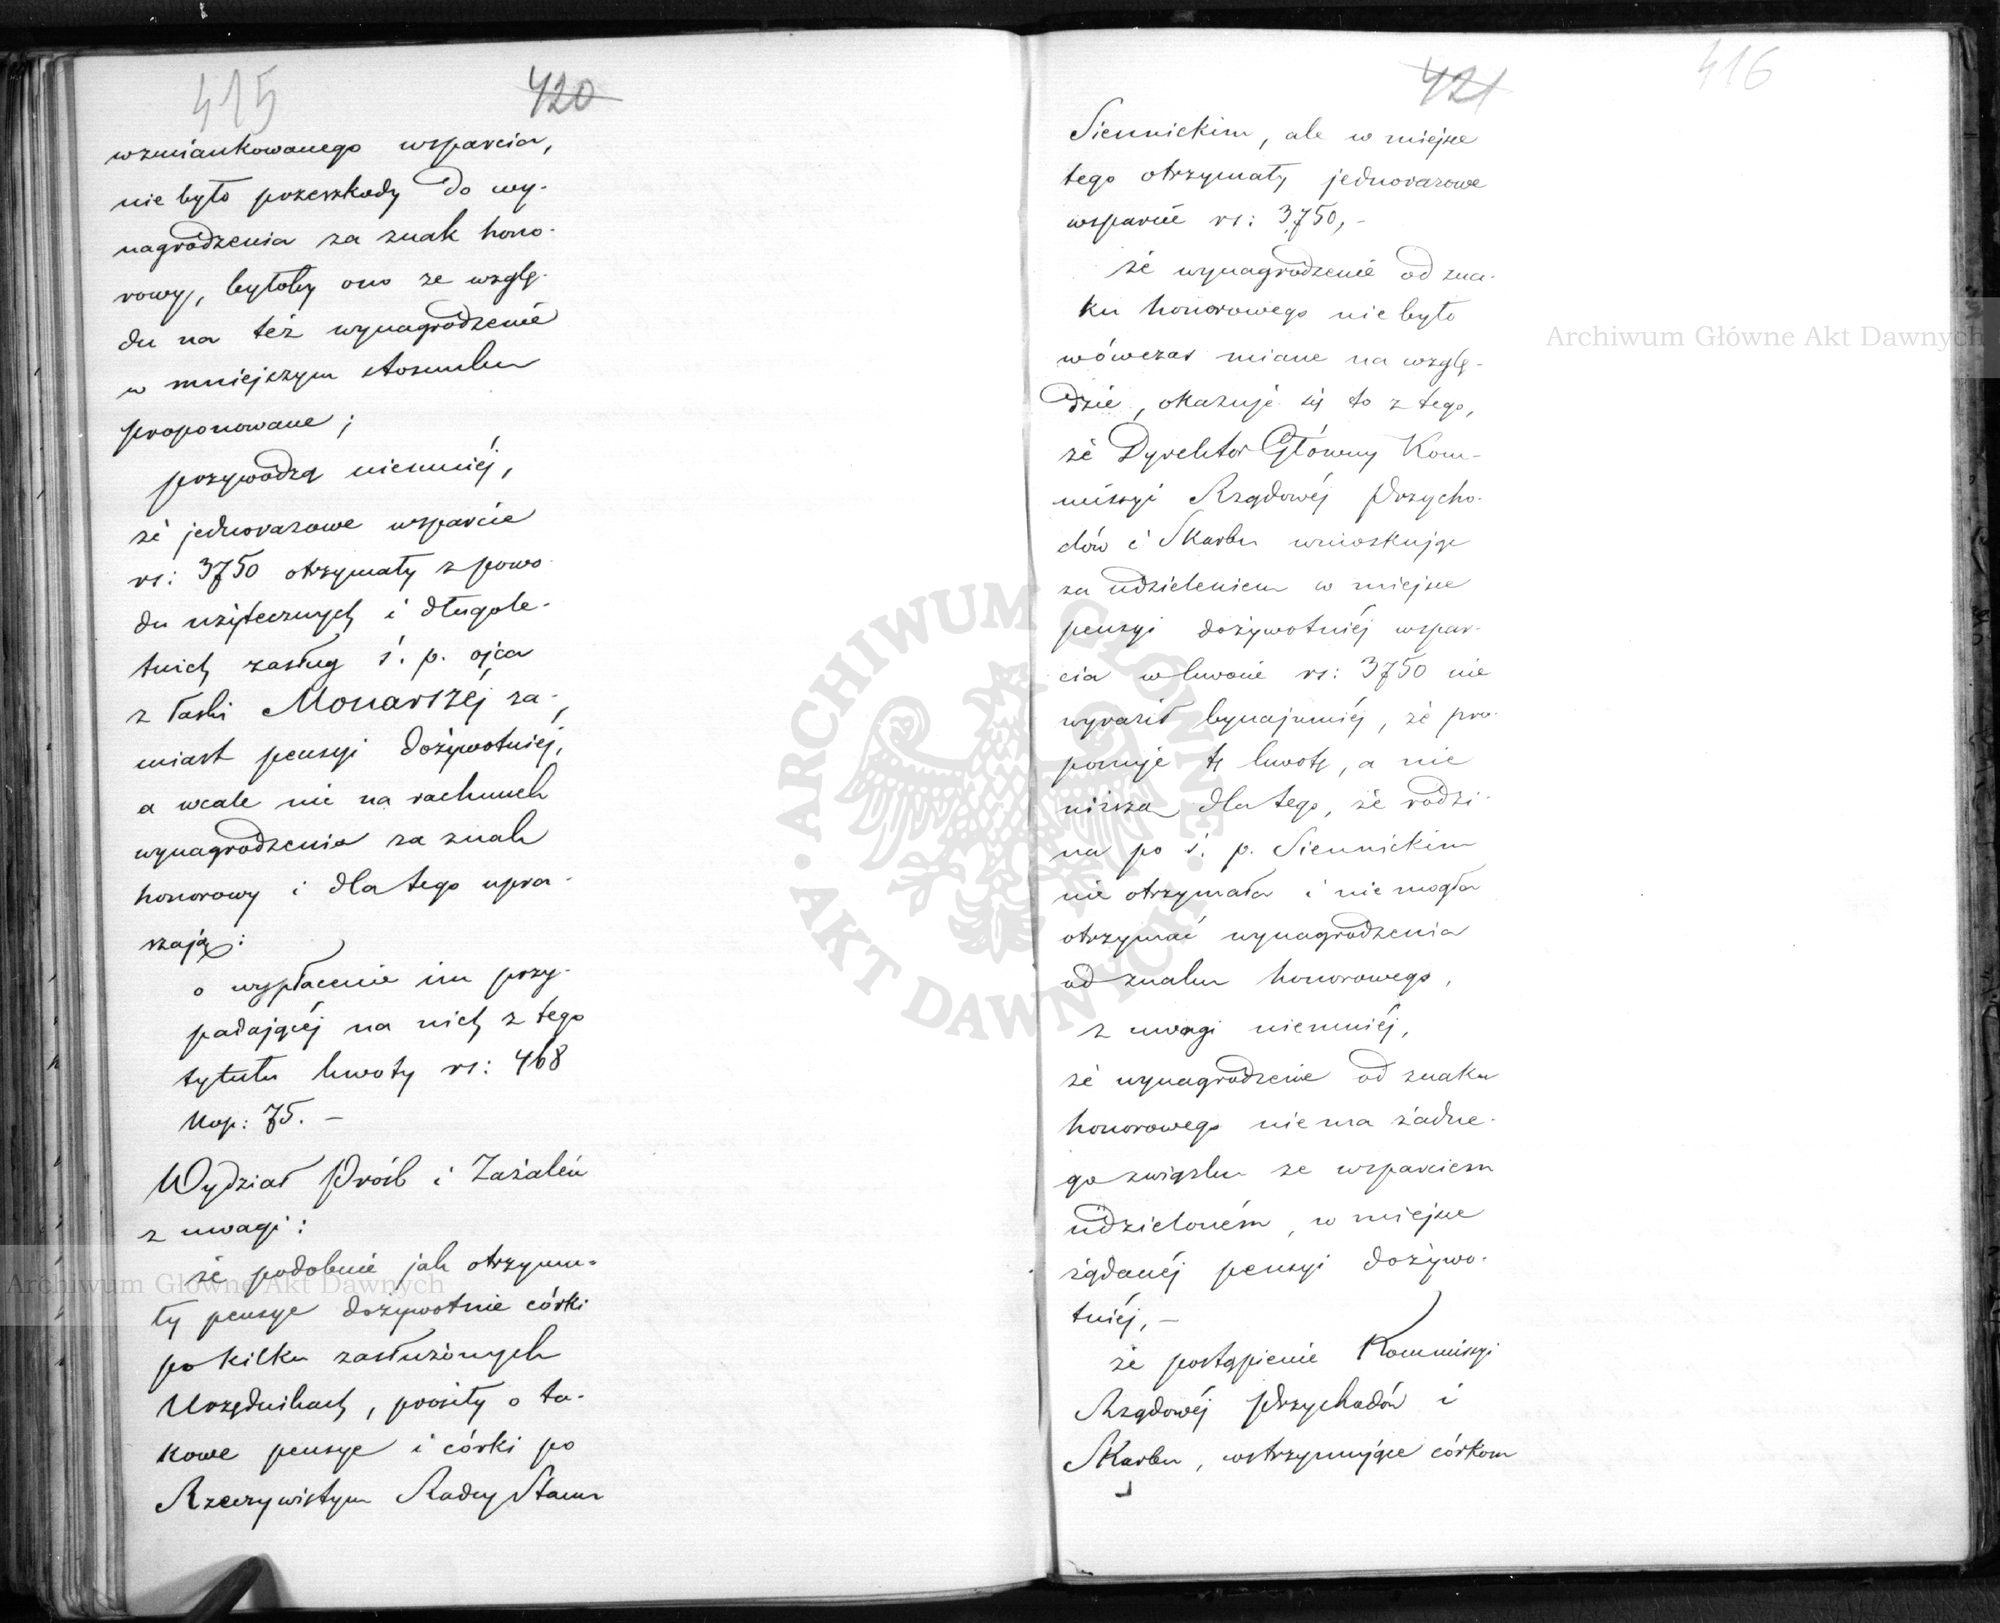 415
420
wzmiankowanego wsparcia,
nie było przeszkody do wy-
nagrodzenia za znak hono-
rowy, byłoby ono ze wzglę-
du na też wynagrodzenie
w mniejszym stosunku
proponowane;
przywodzą niemniéj,
że jednorazowe wsparcie
rs: 3750 otrzymały z powo-
du użytecznych i długole-
tnich zasług ś. p. ojca
z łaski Monarszéj za-
miast pensyi dożywotniéj,
a wcale nie na rachunek
wynagrodzenia za znak
honorowy i dla tego upra-
szają:
o wypłacenie im przy-
padającéj na nich z tego
tytułu kwoty rs: 468
kop: 75. –
Wydział Próśb i Zażaleń
z uwagi:
że podobnie jak otrzyma-
ły pensye dożywotnie córki
po kilku zasłużonych
Urzędnikach, prosiły o ta-
kowe pensye i córki po
Rzeczywistym Radcy Stanu
421
416
Siennickim, ale w miejsce
tego otrzymały jednorazowe
wsparcie rs: 3750, –
że wynagrodzenie od zna-
ku honorowego nie było
wówczas miane na wzglę-
dzie, okazuje się to z tego,
że Dyrektor Główny Kom-
missyi Rządowéj Przycho-
dów i Skarbu wnioskując
za udzieleniem w miejsce
pensyi dożywotniéj wspar-
cia w kwocie rs: 3750 nie
wyraził bynajmniéj, że pro-
ponuje tę kwotę, a nie
niższą dla tego, że rodzi-
na po ś. p. Siennickim
nie otrzymała i nie mogła
otrzymać wynagrodzenia
od znaku honorowego,
z uwagi niemniéj,
że wynagrodzenie od znaku
honorowego nie ma żadne-
go związku ze wsparciem
udzieloném, w miejsce
żądanéj pensyi dożywo-
tniéj, –
że postąpienie Kommissyi
Rządowéj Przychodów i
Skarbu, wstrzymujące córkom
Archiwum Główne Akt Dawnych
Archiwum Główne Akt Dawnych
ARCHIWUM GŁÓWNE AKT DAWNYCH